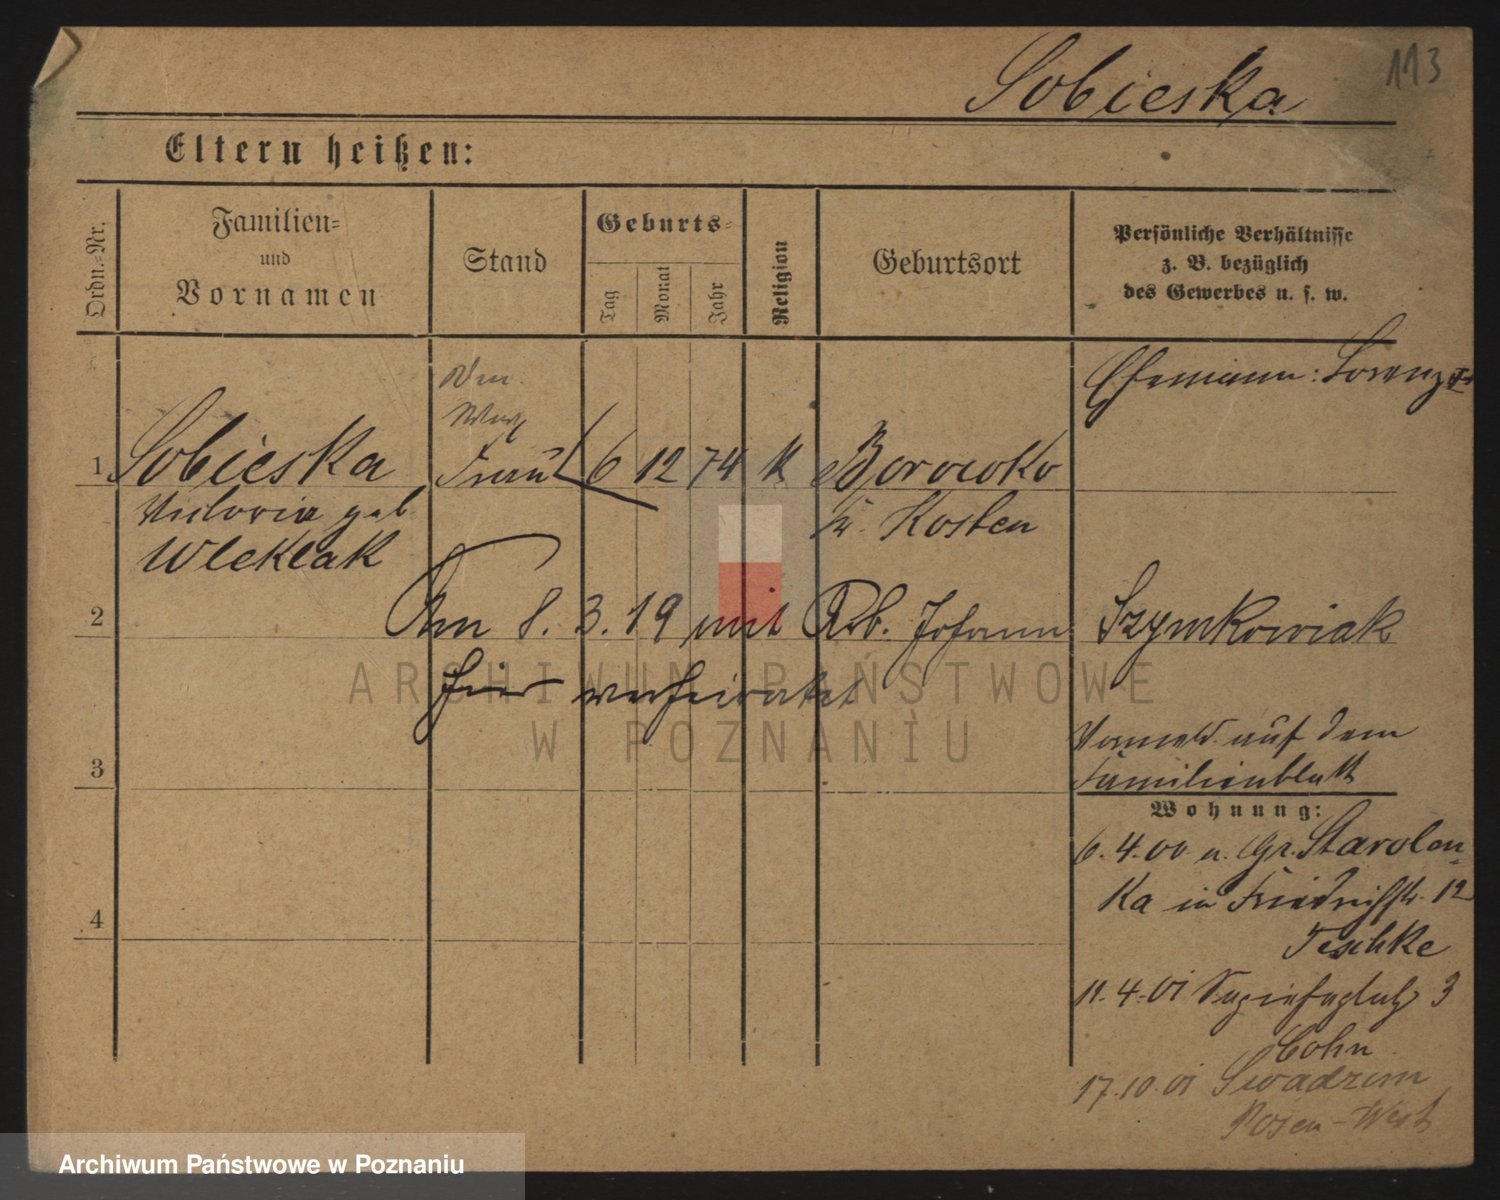 113
Sobieska
Eltern heißen:
Ordn.=Nr.
Familien=
und
Vornamen
Stand
Geburts=
Tag
Monat
Jahr
Religion
Geburtsort
Persönliche Verhältnisse
z. B. bezüglich
des Gewerbes u. s. w.
Ehemann: Lorenz
1 Sobieska Frau 6 12 74 K Borowko
Victoria geb Kr. Kosten
Wleklak
2 Am 8. 3. 19 mit Arb. Johann Szymkowiak
hier verheiratet
ARCHIWUM PAŃSTWOWE
W POZNANIU
auf dem
3 Familienblatt
Wohnung:
6. 4. 00 n. Gr. Starolen-
ka in Friedrichstr. 12
4
Teschke
11. 4. 01 Sapiehaplatz 3
Cohn
17. 10. 01 Swadzim
Posen-West
Archiwum Państwowe w Poznaniu